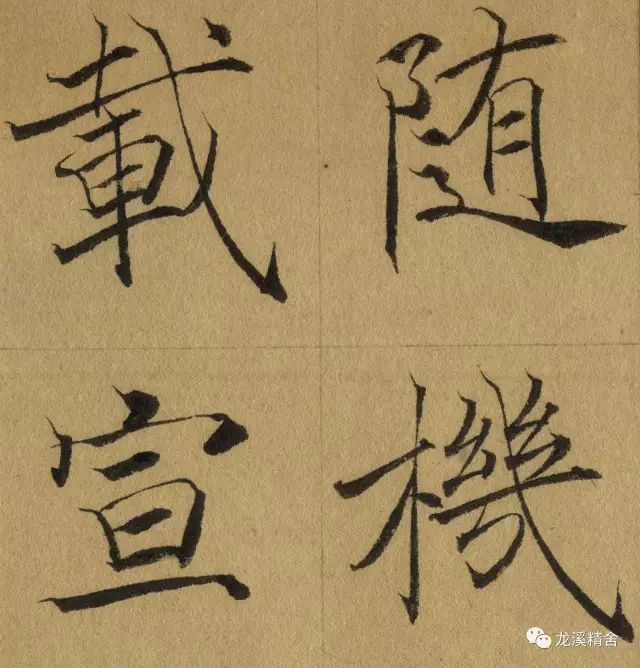 随機
載宣
龙溪精舍